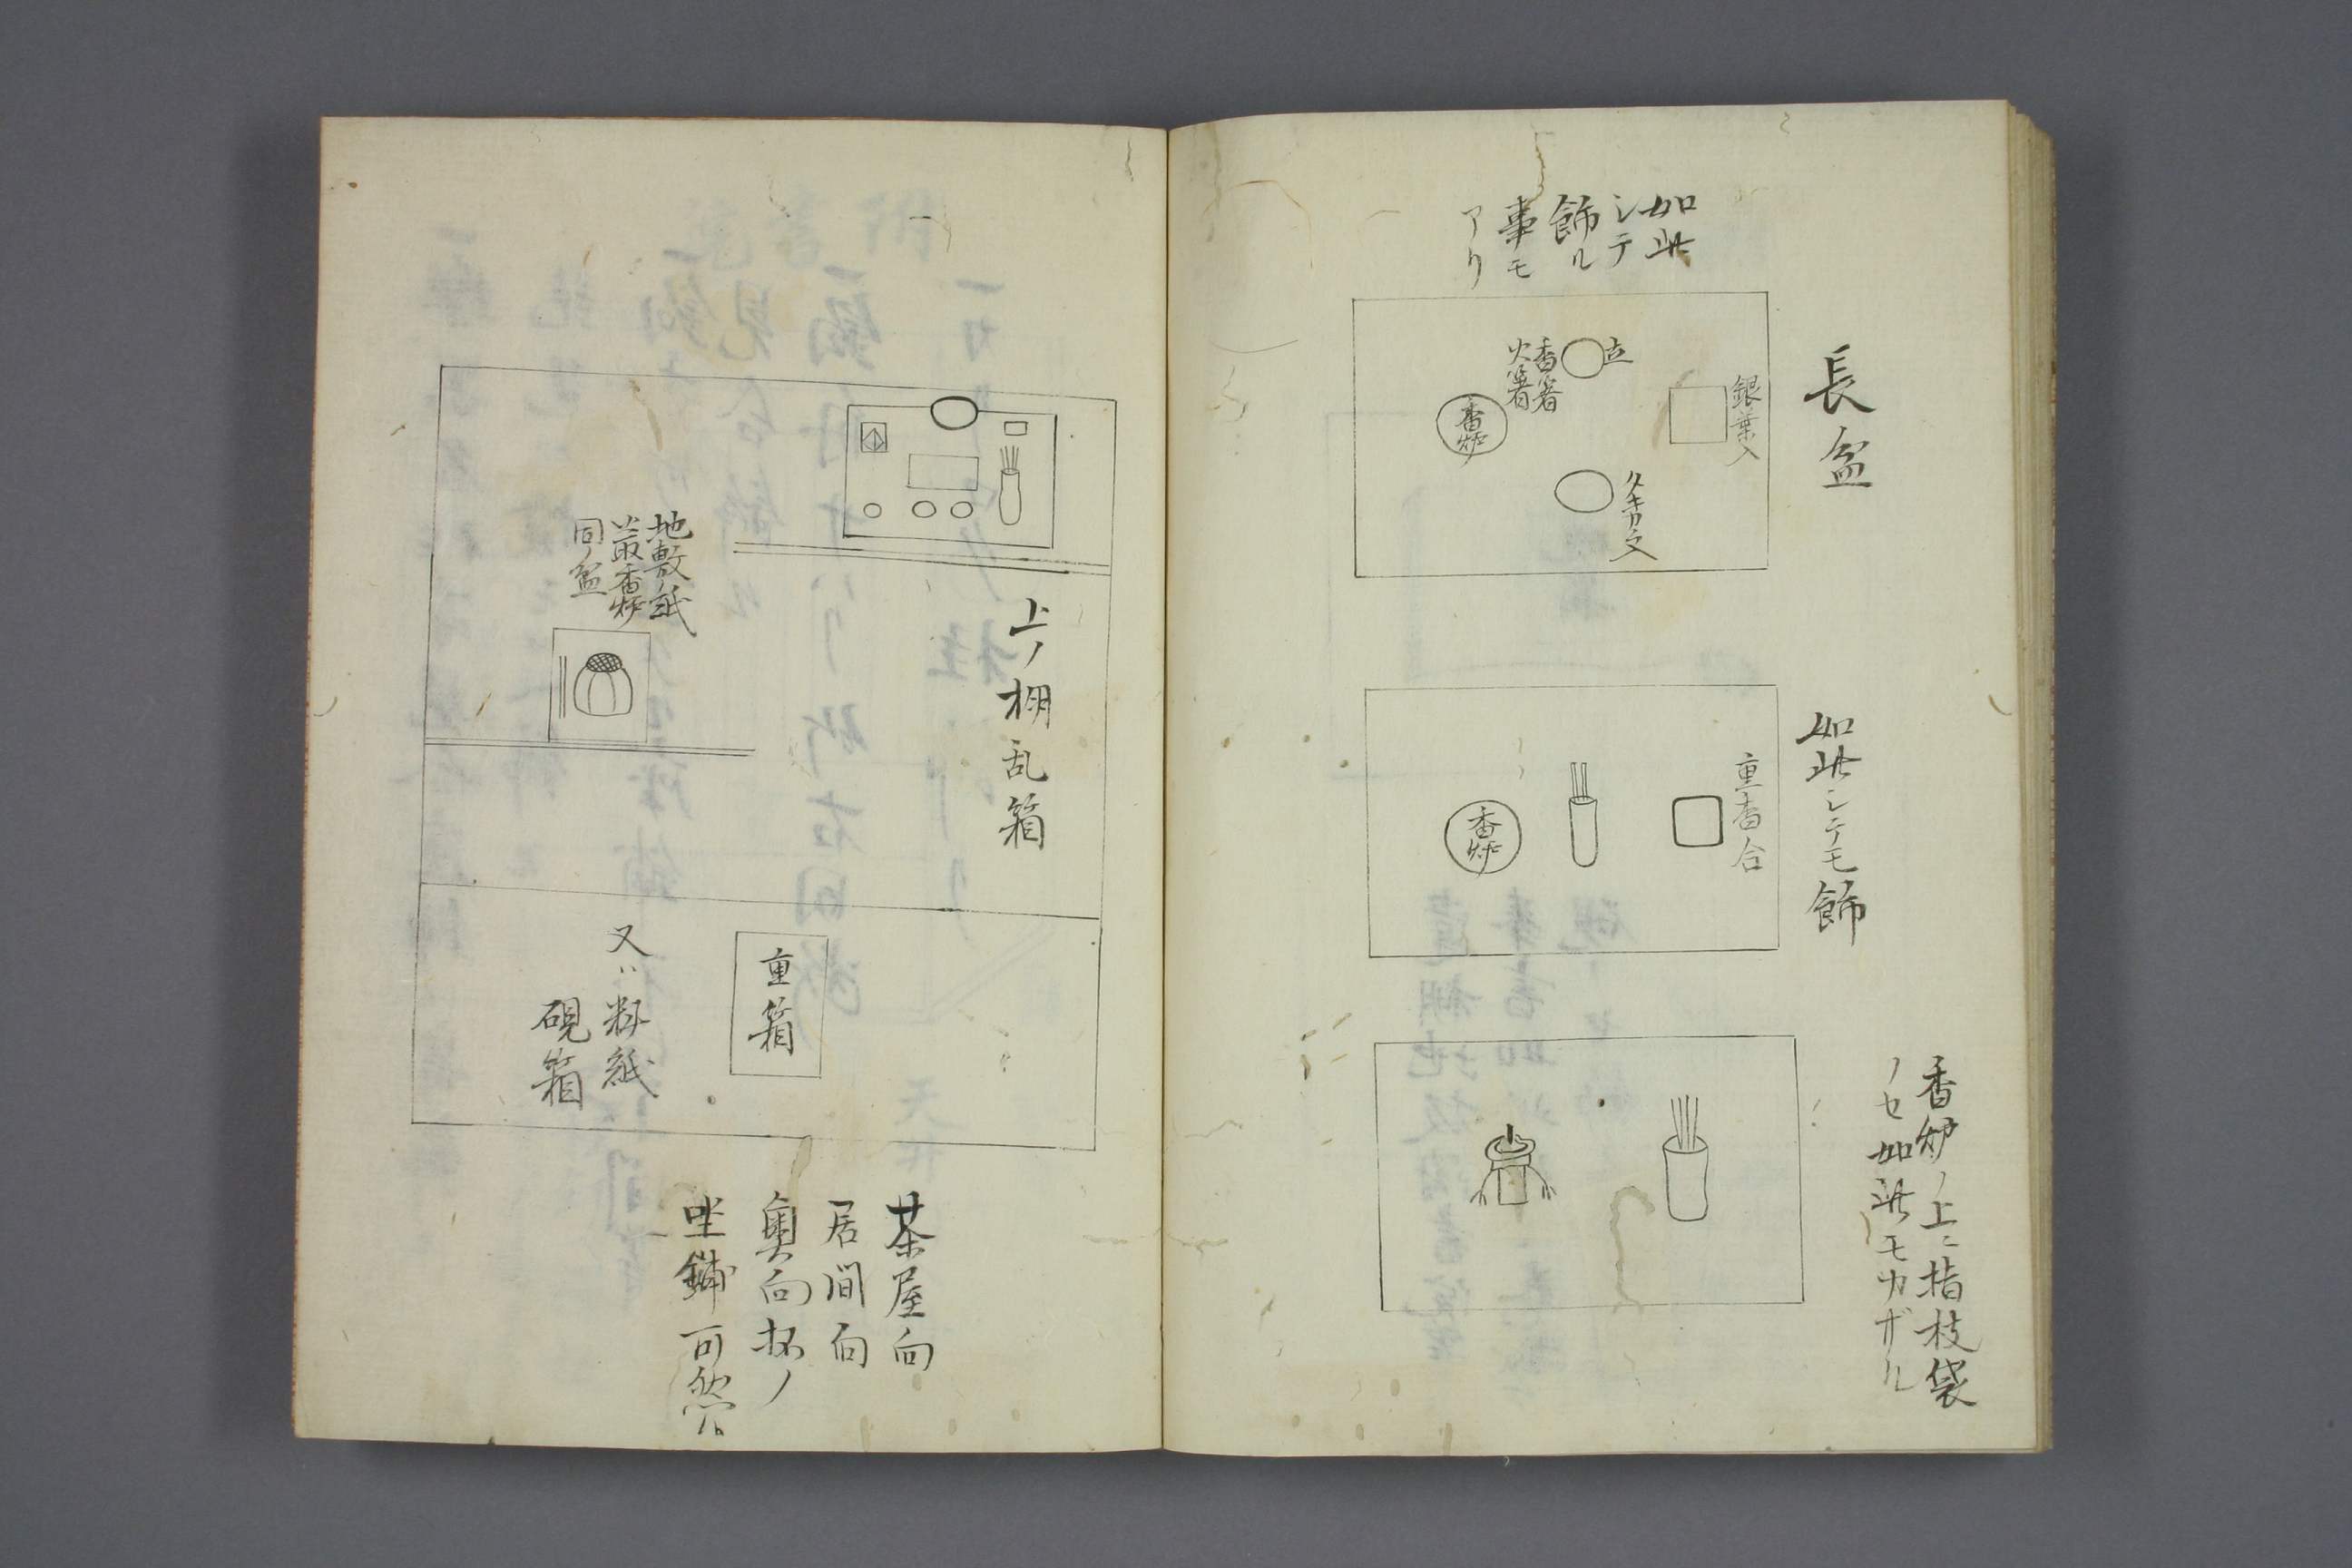 長盆
如此
シテ
飾ル
事モ
アリ
銀葉入
立
香箸
火箸
香炉
タキカラ入
如此シテモ飾
重香合
香炉
香炉ノ上ニ指枝袋
ノセ如此モカザル
上ノ棚乱箱
地敷紙
香炉
同盆
重箱
又ハ料紙
硯箱
茶屋向
居間向
奥向抔ノ
坐鋪可然